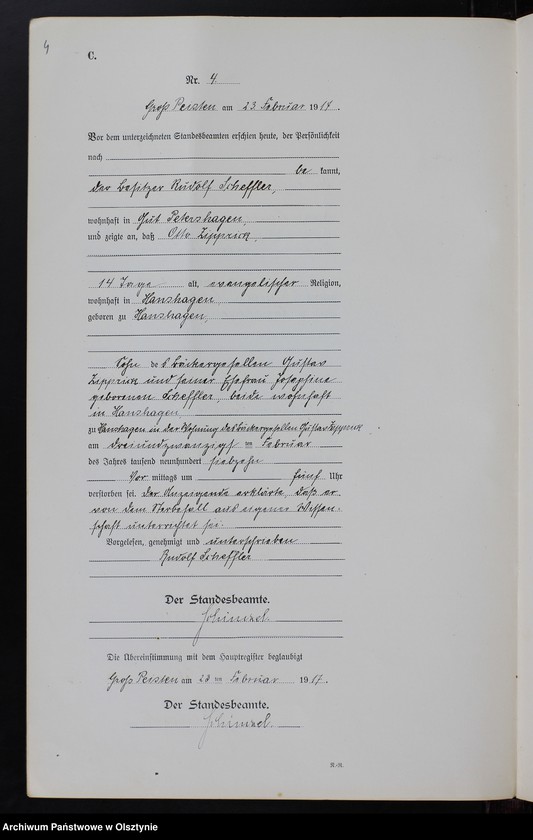 4
C.
Nr. 4
Groß Peisten am 23. Februar 1917.
Vor dem unterzeichneten Standesbeamten erschien heute, der Persönlichkeit
nach
be kannt,
der Besitzer Rudolf Scheffler,
wohnhaft in Gut Petershagen,
und zeigte an, daß Otto Zipprick,
14 Tage alt, evangelischer Religion,
wohnhaft in Hanshagen
geboren zu Hanshagen,
Sohn des Bäckergesellen Gustav
Zipprick und seiner Ehefrau Josephine
geborenen Scheffler, beide wohnhaft
in Hanshagen
zu Hanshagen in der Wohnung des Bäckergesellen Gustav Zipprick
am dreiundzwanzigsten Februar
des Jahres tausend neunhundert siebzehn
Vor mittags um fünf Uhr
verstorben sei. Der Anzeigende erklärte, daß er
von dem Sterbefall aus eigener Wissen-
schaft unterrichtet sei.
Vorgelesen, genehmigt und unterschrieben
Rudolf Scheffler
Der Standesbeamte.
Die Übereinstimmung mit dem Hauptregister beglaubigt
Groß Peisten am 23 ten Februar 1917.
Der Standesbeamte.
Archiwum Państwowe w Olsztynie